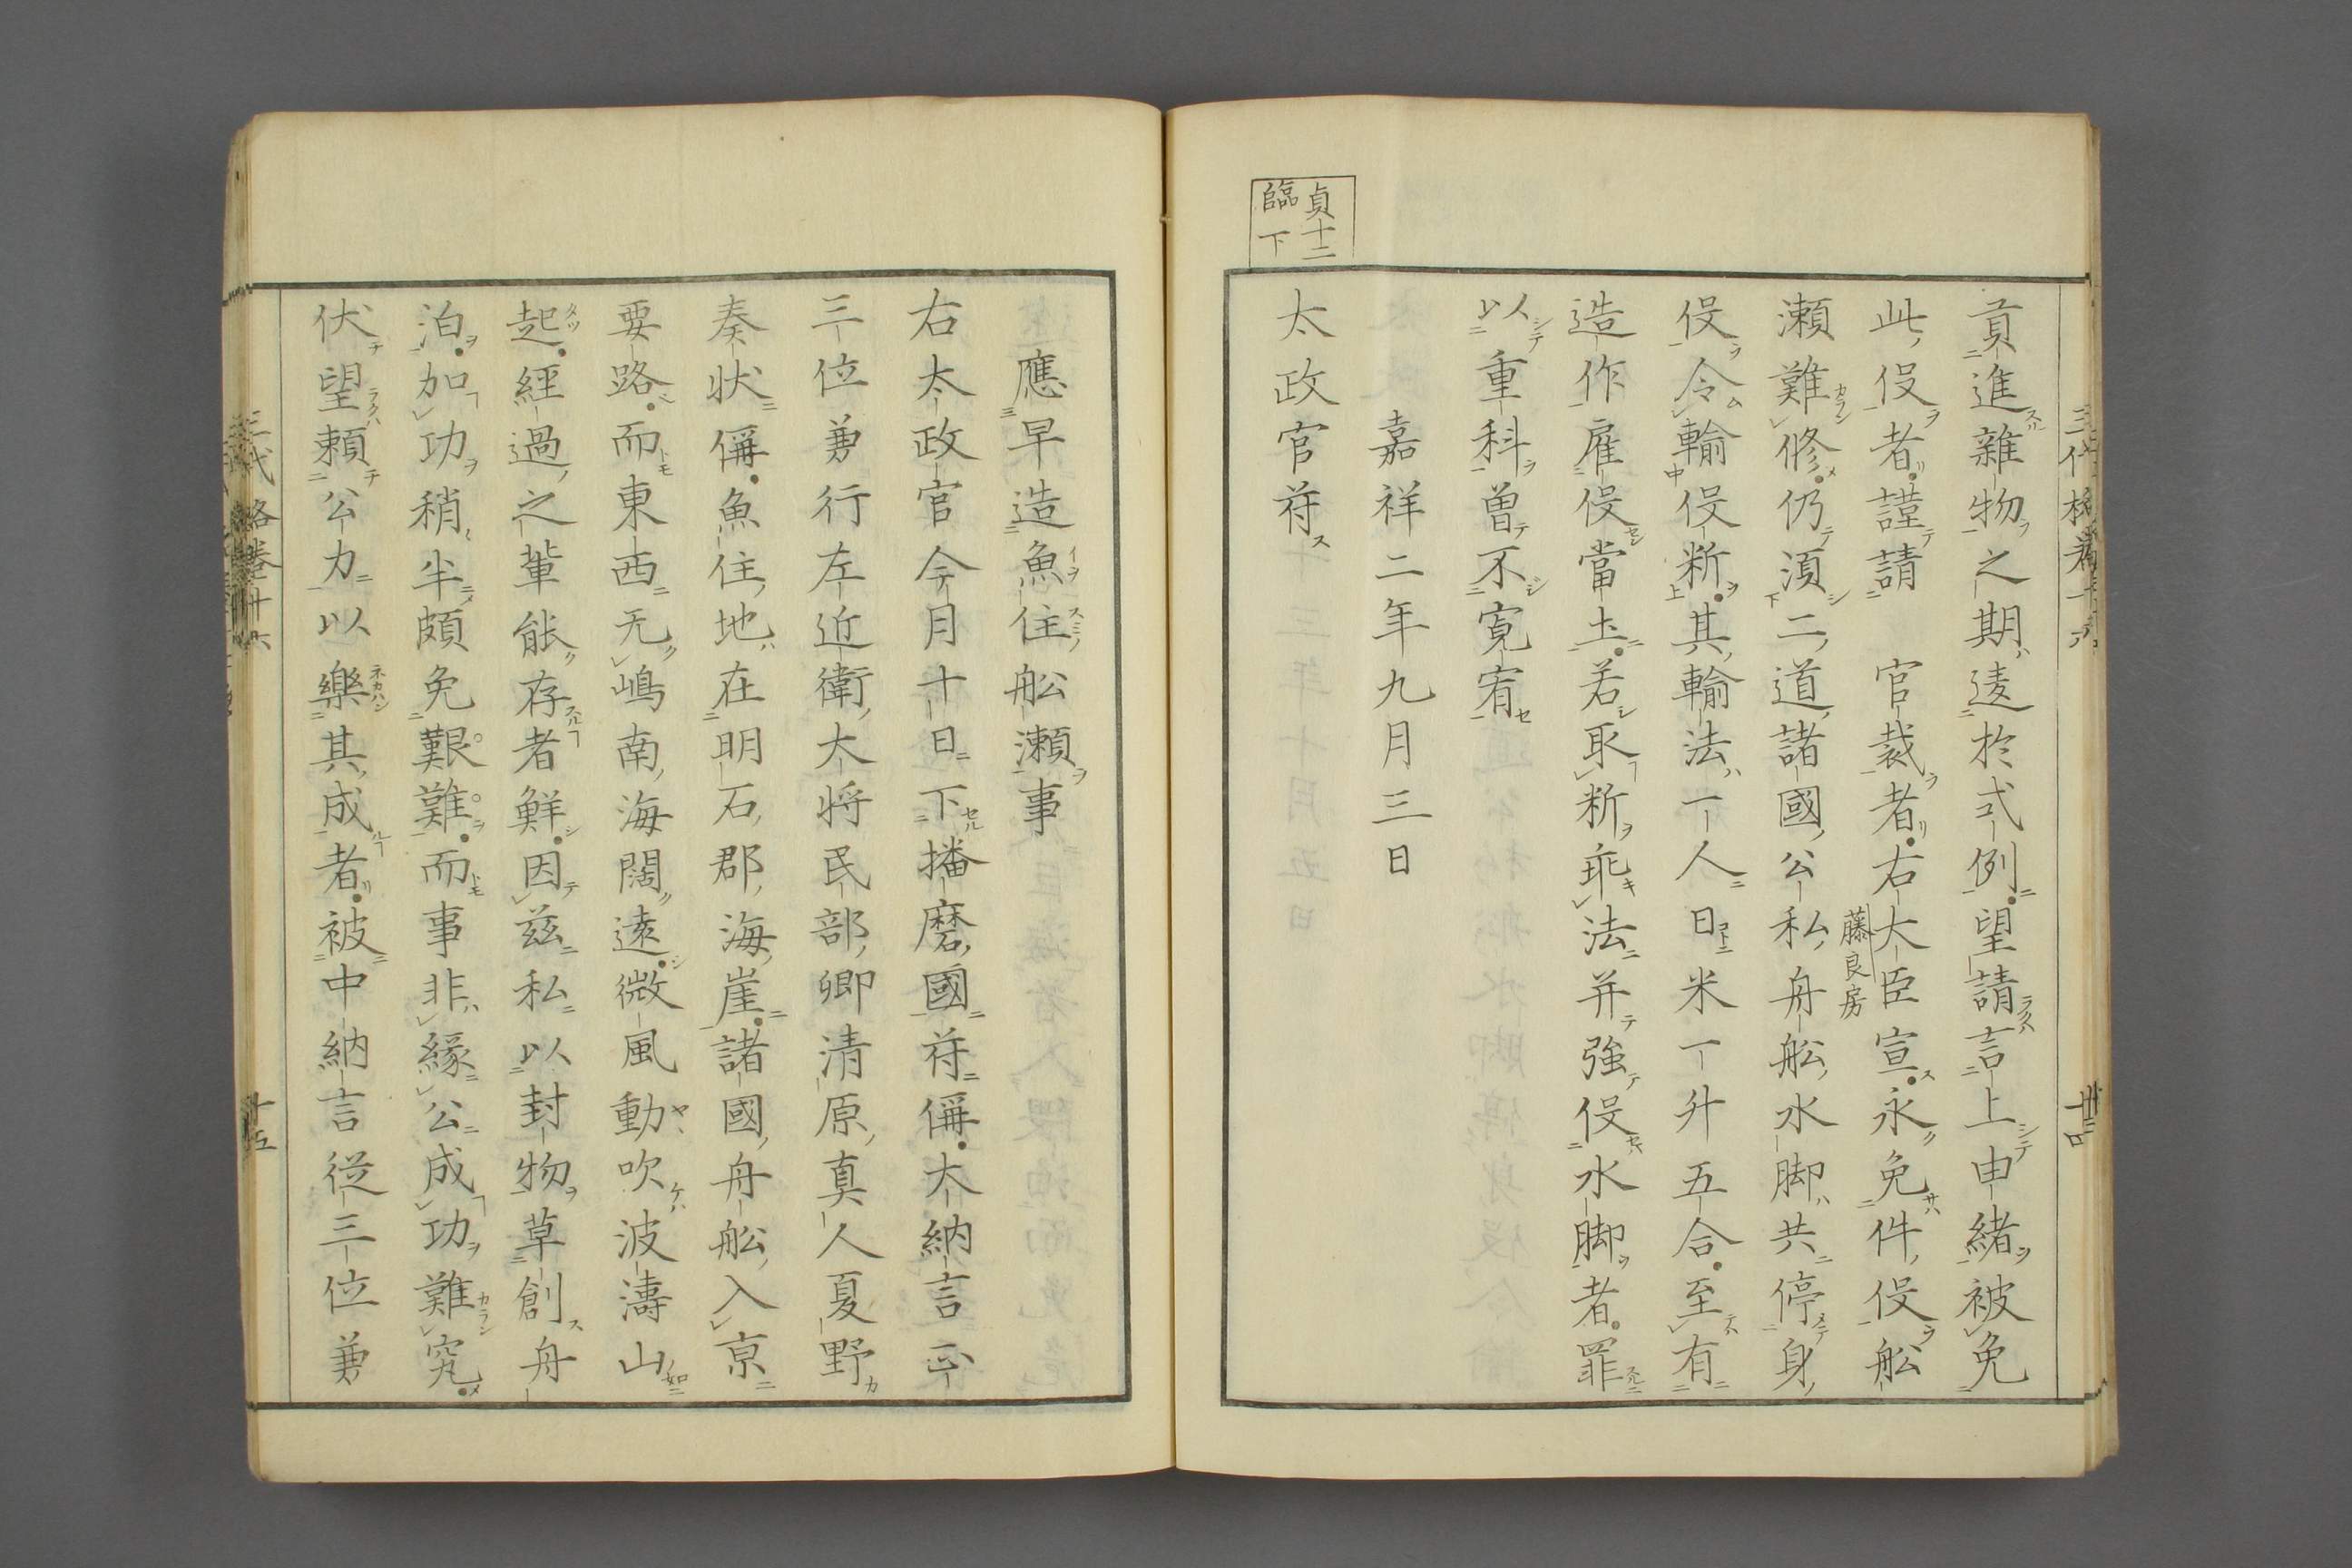 貢進雜物之期逺於式例望請言上申緒被免
此役者謹請　官裁者右大臣宣永免件役舩
藤良房
瀬難修仍湏二道諸國公私舟舩水脚共停身
役令輸役䉼其輸法一人日米一升五合至有
造作雇役當土若取䉼乖法并強役水脚者罪
以重科曽不寛宥
嘉祥二年九月三日
貞十二
臨下
太政官苻
應早造魚住舩瀬事
右太政官今月十日下播磨國苻偁大納言正
三位兼行左近衛大将民部卿清原真人夏野
奏状偁魚住地在明石郡海崖諸國舟舩入京
要路而東西无嶋南海闊遠微風動吹波濤山
起經過之輩能存者鮮因茲私以封物草創舟
泊加功稍半頗免艱難而事非縁公成功難究
伏望頼公力以樂其成者被中納言從三位兼